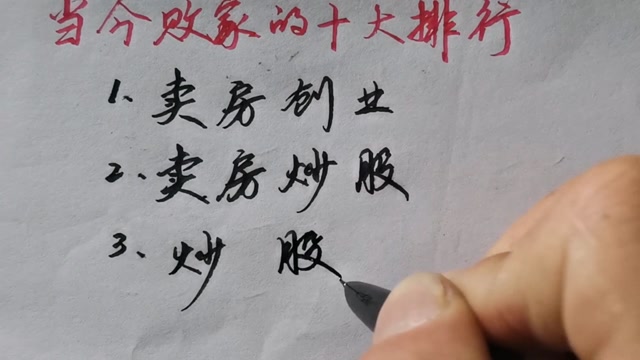 当今败家的十大排行
1、卖房创业
2、卖房炒股
3、炒 股